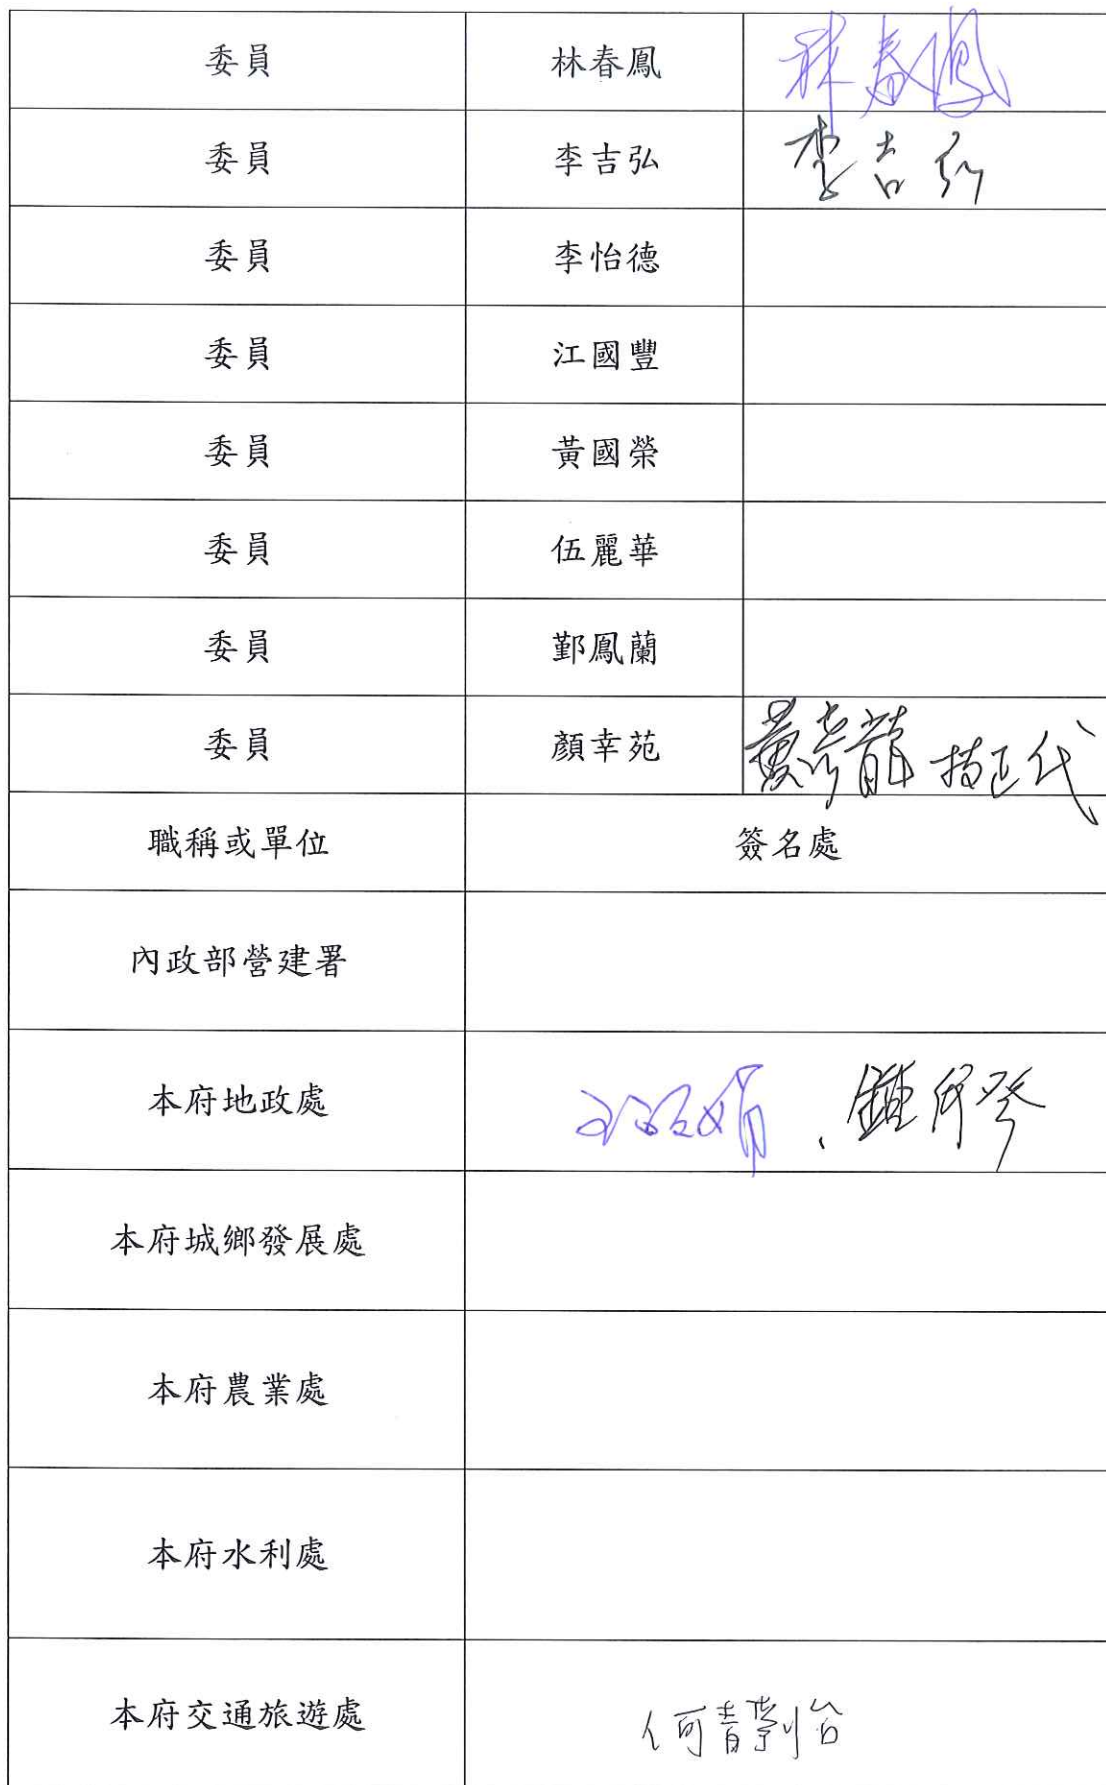 委員 林春鳳 林春鳳
委員 李吉弘 李吉弘
委員 李怡德
委員 江國豐
委員 黃國榮
委員 伍麗華
委員 鄞鳳蘭
委員 顏幸苑 技正代
職稱或單位 簽名處
內政部營建署
本府地政處
本府城鄉發展處
本府農業處
本府水利處
本府交通旅遊處